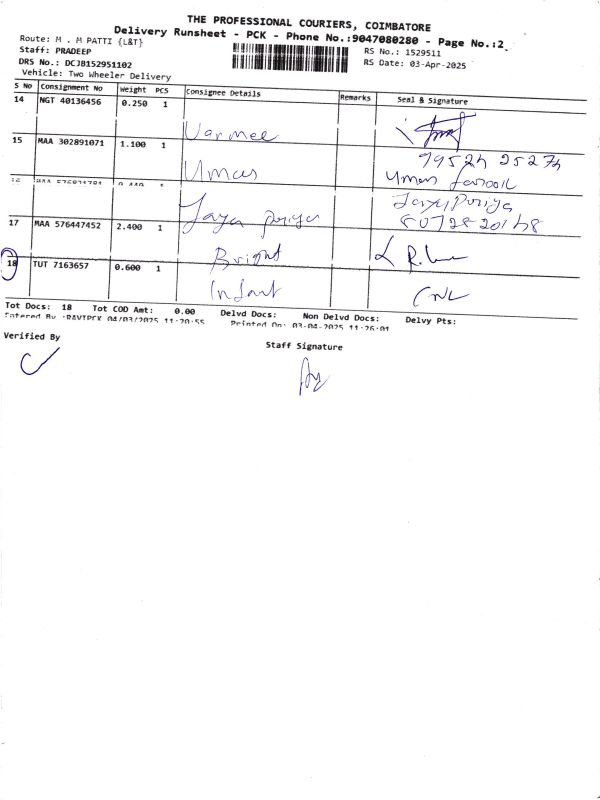 THE PROFESSIONAL COURIERS, COIMBATORE
Delivery Runsheet - PCK - Phone No.:9047080280 - Page No.:2
Route: M . M PATTI {L&T}
RS No.: 1529511
Staff: PRADEEP
RS Date: 03-Apr-2025
DRS No.: DCJB152951102
Vehicle: Two Wheeler Delivery
S No Consignment No Weight PCS Consignee Details Remarks Seal & Signature
14 NGT 40136456 0.250 1
15 MAA 302891071 1.100 1 Umar
Umar Farook
Jaya priya Jaya Puriya
17 MAA 576447452 2.400 1 Bright
18 TUT 7163657 0.600 1 Infant
Tot Docs: 18 Tot COD Amt: 0.00 Delvd Docs: Non Delvd Docs: Delvy Pts:
Entered By :RAVIPCK 04/03/2025 11:20:55 Printed On: 03-04-2025 11:26:01
Verified By
Staff Signature